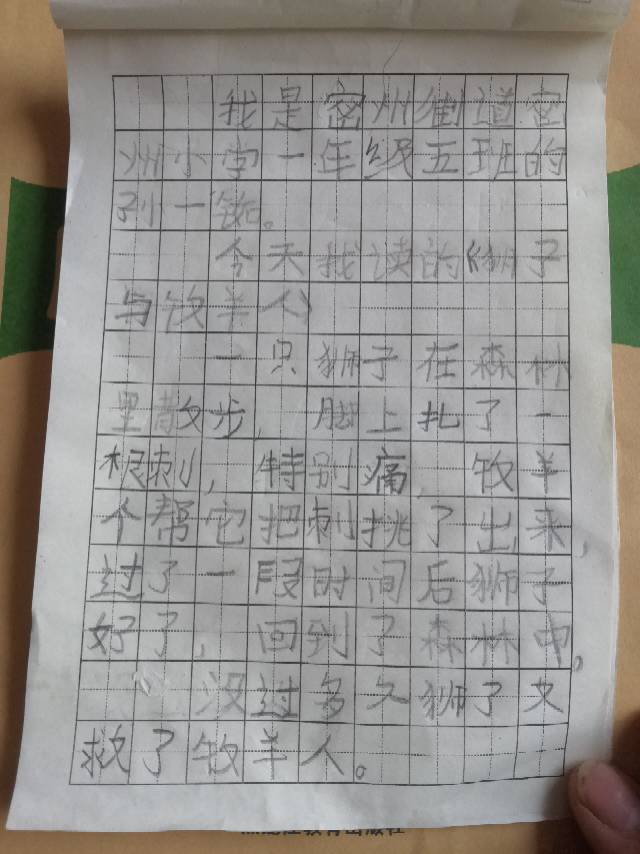 我是密州街道密
州小学一年级五班的
孙一铭。
今天我读的《狮子
与牧羊人》
一只狮子在森林
里散步,脚上扎了一
根刺,特别痛,牧羊
个帮它把刺挑了出来,
过了一段时间后狮子
好了,回到了森林中,
没过多久狮了又
救了牧羊人。